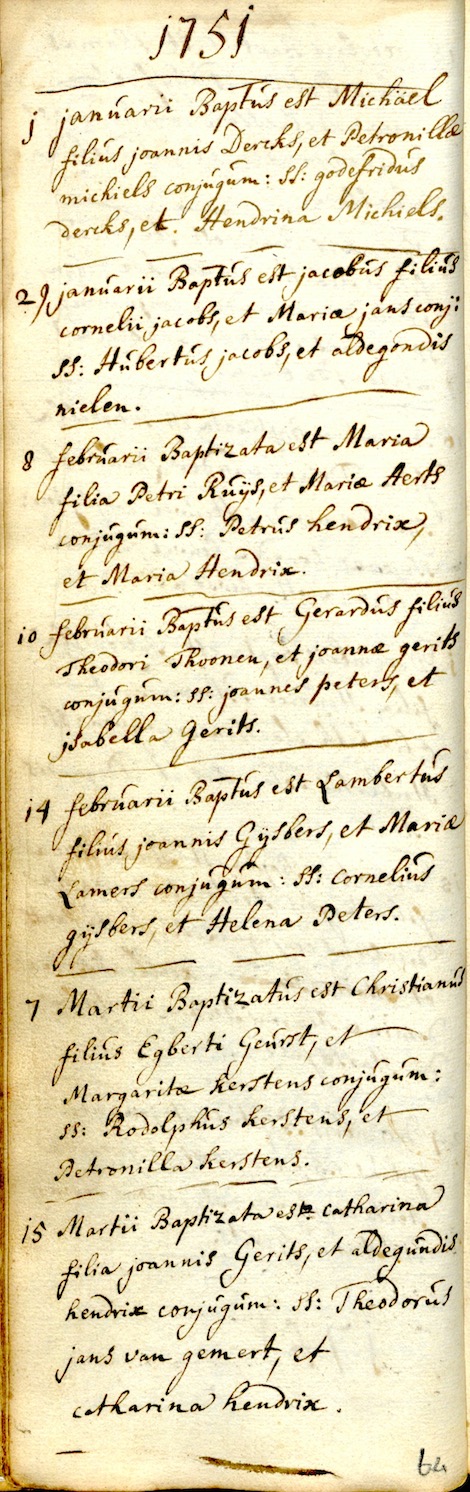 1751
j januarii Baptus est Michäel
filius joannis Dercks, et Petronillæ
michiels conjugum: ss: godefridus
dercks, et. Hendrina Michiels.
29 januarii Baptus est jacobus filius
cornelii jacobs, et Mariæ jans conj:
ss: Hubertus jacobs, et aldegondis
nielen.
8 februarii Baptizata est Maria
filia Petri Ruijs, et Mariæ Aerts
conjugum: ss: Petrus hendrix,
et Maria Hendrix.
10 februarii Baptus est Gerardus filius
Theodori Thoonen, et joannæ gerits
conjugum: ss: joannes peters, et
jsabella Gerits.
14 februarii Baptus est Lambertus
filius joannis Gijsbers, et Mariæ
Lamers conjugum: ss: Cornelius
gijsbers, et Helena Peters.
7 Martii Baptizatus est Christianus
filius Egberti Geurst, et
Margaritæ kerstens conjugum:
ss: Rodolphus kerstens, et
Petronilla kerstens.
15 Martii Baptizata est catharina
filia joannis Gerits, et aldegundis
hendrix conjugum: ss: Theodorus
jans van gemert, et
catharina hendrix.